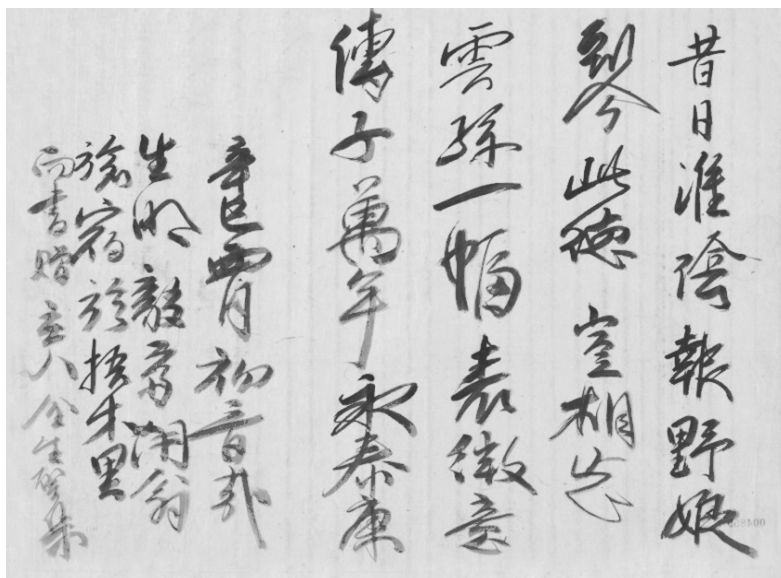 昔日淮陰報野娘
到今此德豈相忘
雲孫一幅表微意
傳子萬年永泰康
辛巳四月初音哉
生明 毅齋 翁
旅宿於梧才里
而書贈主人金生